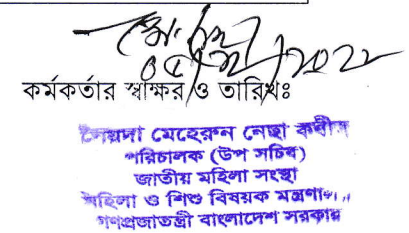 কর্মকর্তার স্বাক্ষর ও তারিখঃ
সৈয়দা মেহেরুন নেছা কবীর
পরিচালক (উপ সচিব)
জাতীয় মহিলা সংস্থা
মহিলা ও শিশু বিষয়ক মন্ত্রণালয়
গণপ্রজাতন্ত্রী বাংলাদেশ সরকার